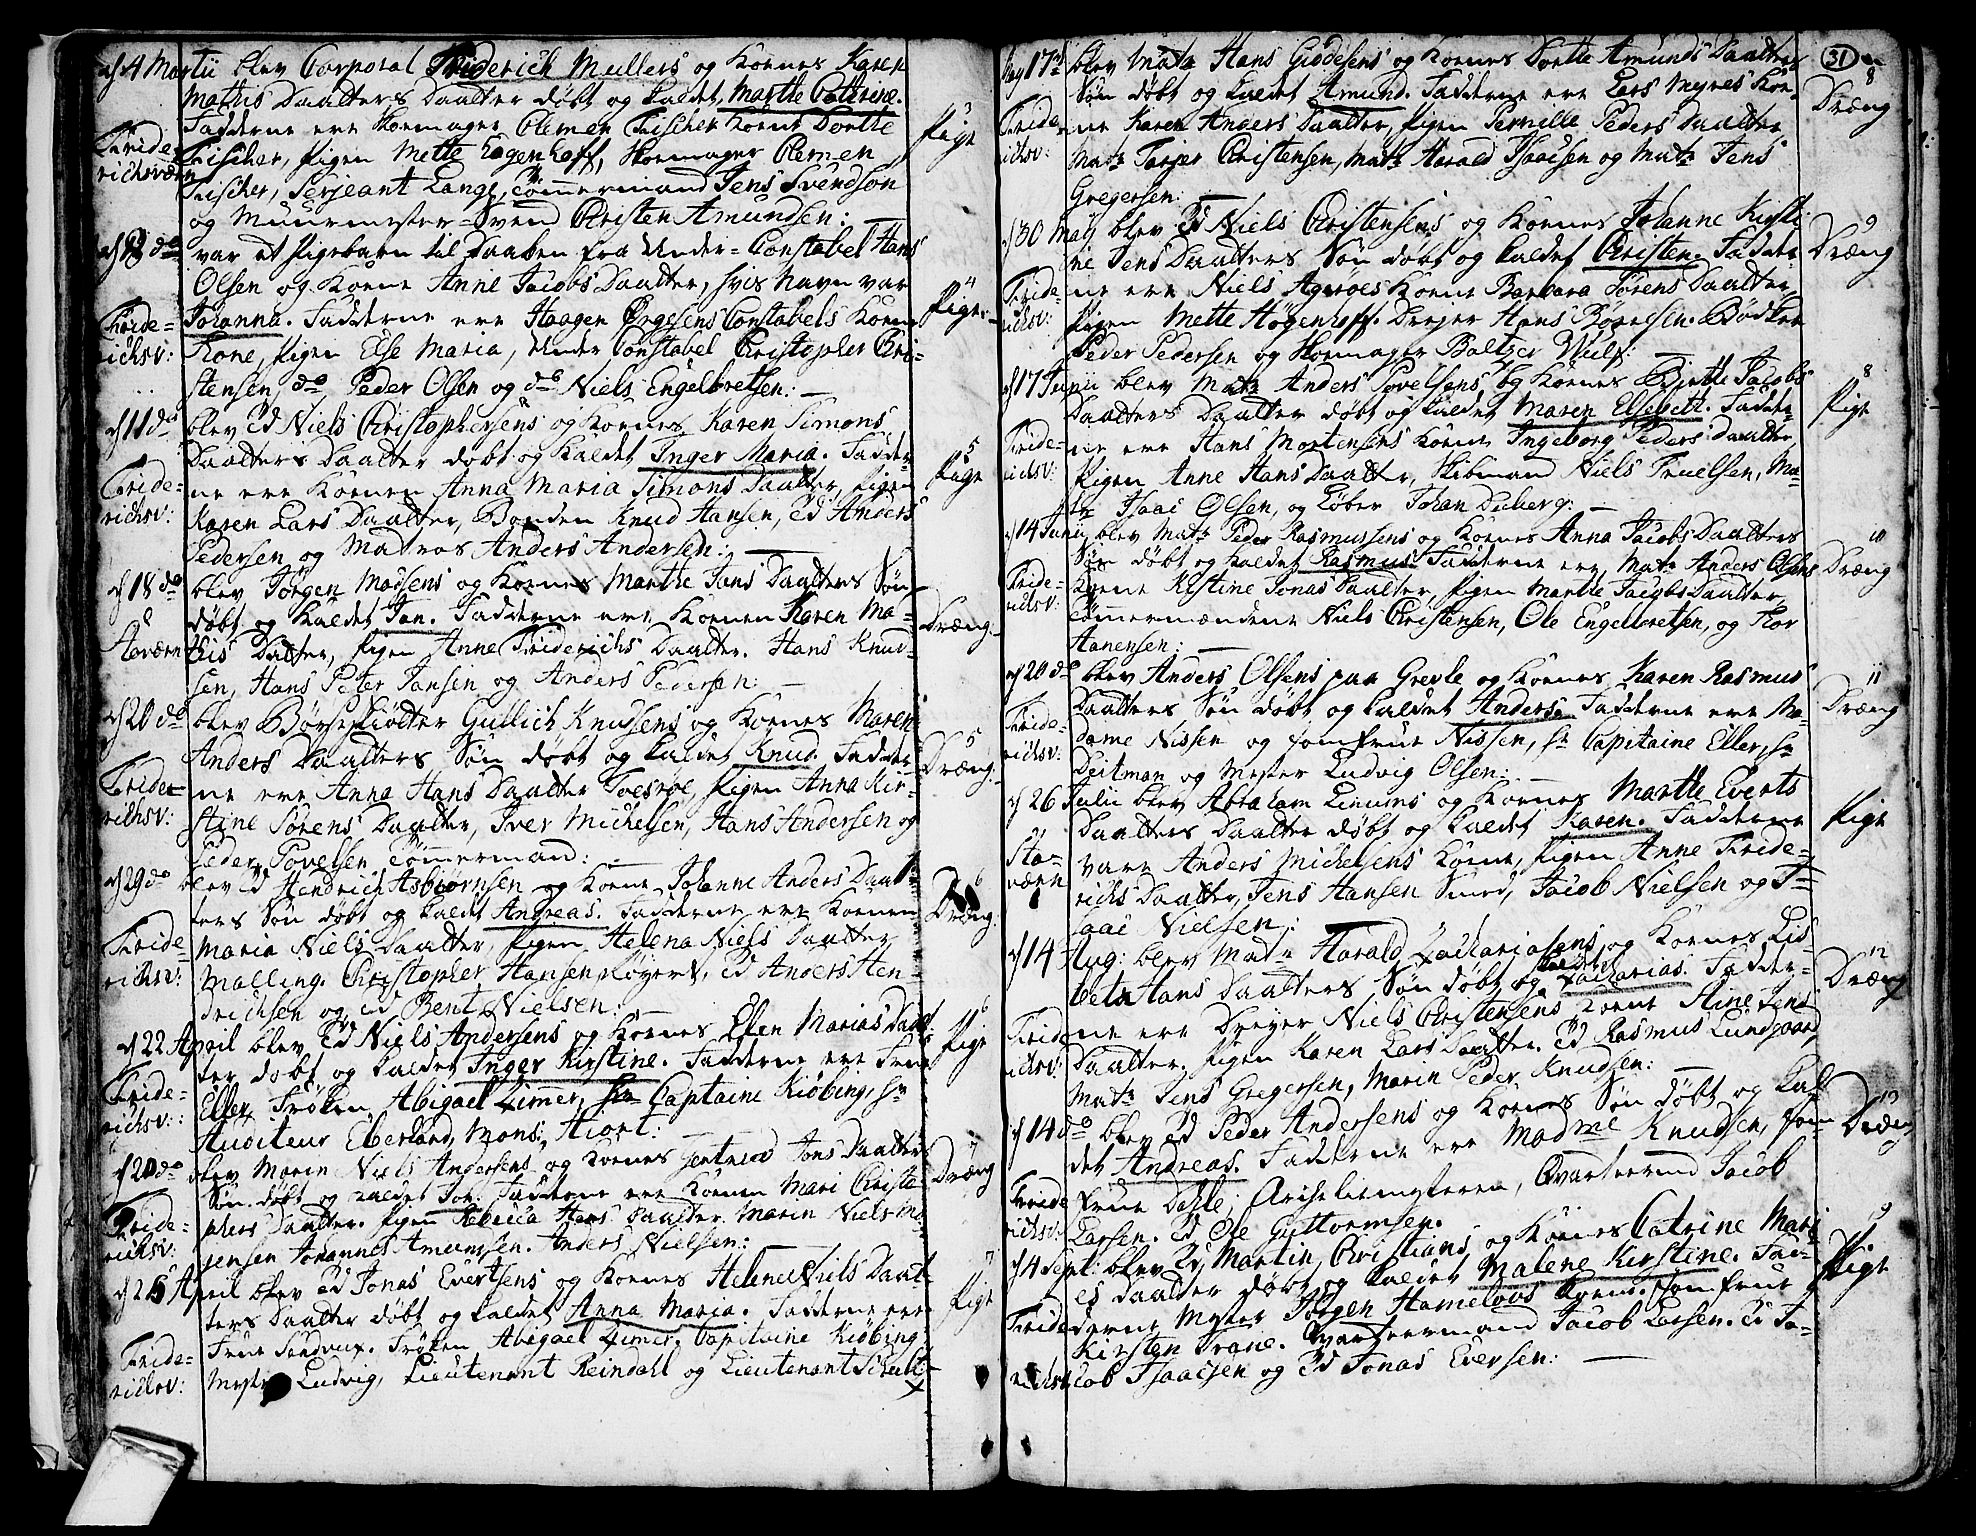 d 4 Martii blev Corporal Friderich Mullers og Koenes Karen
Mathis Daatters Daatter døbt og kaldet Marthe Cathrine.
Fadderne ere Skomager Clemen Fischer Koene Dorthe
Fischer, Pigen Mette Høgenhoff, Skomager Clemen
Fischer, Serjeant Lange, Tømmermand Jens Svendsøn
og Muurmester-Svend Christen Amundsen:
Fride-
richsværn
3
Pige
d do
var et Pigebarn til Daaben fra Under-Constabel Hans
Olsen og Koene Anne Jacobs Daatter, hvis Navn var
Johanna. Fadderne ere Haagen Constabels Koene
Kone, Pigen Else Maria, Under Constabel Christopher Chri-
stensen, do Peder Olsen og do Niels Engelbretsen:
Fride-
richsv:
4
Pige
d 11 do
blev Ed Niels Christophersens og Koenes Karen Simons
Daatters Daatter døbt og kaldet Inger Maria. Fadder-
ne ere Koenen Anna Maria Simons Daatter, Pigen
Karen Lars Daatter, Bonden Knud Hansen, Ed Anders
Pedersen og Matros Anders Andersen:
Fride-
richsv:
5
Pige
d 18 do
blev Jørgen Madsens og Koenes Marthe Jans Daatters Søn
døbt og kaldet Jan. Fadderne ere Koenen Karen Ma-
this Datter, Pigen Anne Friderichs Daatter. Hans Knud-
sen, Hans Peter Jansen og Anders Pedersen:
Dræng:
d 20 do
blev Børseskiødter Gullich Knudsens og Koenes Maren
Anders Daatters Søn døbt og kaldet Knud. Fadder-
ne ere Anna Hans Daatter Foesrøe, Pigen Anna Kir-
stine Sørens Daatter, Iver Michelsen, Hans Andersen og
Peder Povelsen Tømmerman:
Fride-
richsv:
5
Dræng:
d 29 do
blev Ed Hendrich Asbiørnsen og Koene Johanne Anders Daat-
ters Søn døbt og kaldet Andreas. Fadderne ere Koenen
Maria Niels Daatter, Pigen Helena Niels Daatter
Malling. Christopher Hansen Røyert, Ed Anders Hen-
drichsen og Ed Bent Nielsen:
Fride
richsv:
6
Dræng:
d 22 April blev Ed Niels Andersens og Koenes Elen Marias Daat
ter døbt og kaldet Inger Kirstine. Fadderne ere Frue
Eller, Frøken Abigael Zimer, Captaine Kiøbing, Hr
Auditeur Eberland, Mons: Hiort:
Fride-
richsv:
6
Pige
d 20 do
blev Marin Niels Andersens og Koenes Gertrud Jons Daatters
Søn døbt og kaldet Jon. Fadderne ere Koenen Mari Christo-
phers Daatter. Pigen Rebecca Hans Daatter. Marin Niels Mo-
gensen Johannes Amundsen. Anders Nielsen:
Fride-
richsv:
7
Dræng
d 25 April blev Ed Jonas Evertsens og Koenes Helene Niels Daat-
ters Daatter døbt og kaldet Anna Maria. Fadderne ere
Frue Frøken Abigael Zimer. Capitaine Kiøbing
Mester Ludvig, Lieutenant Reindahl og Lieutenant Schult:
Fride-
richsv:
7
Pige
31
May 17de blev Matr Hans Giødesens og Koenes Dorthe Amunds Daatters
Søn døbt og kaldet Amund. Fadderne ere Lars Myres Koe-
ne Karen Anders Daatter, Pigen Pernille Peders Daatter
Matr Tarjer Christensen, Matr Harald Isacsen og Matr Jens
Gregersen:
Fride-
richsv:
8
Dræng
d 30 Maij blev Ed Niels Christensens og Koenes Johanne Kirsti-
ne Jens Daatters Søn døbt og kaldet Christen. Fadder-
ne ere Niels Agerøes Koene Barbara Sørens Daatter
Pigen Mette Høgenhoff. Drejer Hans Børresen. Bødker
Peder Pedersen og Skomager Baltzer Wulf:
Fride-
richsv:
9
Dræng
d 17 Junii blev Matr Anders Povelsens og Koenes Birthe Jacobs
Daatters Daatter døbt og kaldet Maren Elsebeth. Fadder-
ne ere Hans Mortensens Koene Ingeborg Peders Daatter,
Pigen Anne Hans Daatter, Skibmand Niels Truelsen, Ma-
tr Isaac Olsen, og Løber Johan Duberg:
Fride-
richsv:
8
Pige
d 14 Junij blev Matr Peder Rasmussens og Koenes Anna Jacobs Daatters
Søn døbt og kaldet Rasmus. Fadderne ere Matr Anders Olsens
Koene Kistine Jonas Daatter, Pigen Marthe Jacobs Daatter,
Tømmermændene Niels Christensen, Ole Engelbretsen, og Thor
Hanensen:
Fride-
richsv:
10
Dræng
d 20 do blev Anders Olsens paa Grevle og Koenes Karen Rasmus
Daatters Søn døbt og kaldet Anders. Fadderne ere Ma-
dame Nissen og Jomfrue Nissen, Hr Capitaine Eller, Hr
Deitman og Mester Ludvig Olsen:
Fride-
richsv:
11
Dræng
d 26 Julii blev Abraham Linums og Koenes Marthe Everts
Daatters Daatter døbt og kaldet Karen. Fadderne
vare Anders Michelsens Koene, Pigen Anne Fride-
richs Daatter, Jens Hansen Smed, Jacob Nielsen og I-
saac Nielsen:
Sta-
værn
Pige
d 14 Aug: blev Matr Harald Zachariasens og Koenes Lis-
beta Hans Daatters Søn døbt og kaldet Zacharias. Fadder-
ne ere Dreyer Niels Christensens Koene Stine Jens
Daatter. Pigen Karen Lars Daatter. Ed Rasmus Lundgaard,
Matr Jens Gregersen, Marin Peder Knudsen:
Frid-
richsv:
12
Dræng
d 14 do blev Ed Peder Andersens og Koenes Søn døbt og kal-
det Andreas. Fadderne ere Madme Knudsen, Jom-
frue Dahle, Archeliemesteren, Qvarteermd Jacob
Larsen. Ed Ole Guttormsen.
Fride
richsv:
13
Dræng
d 4 Sept: blev Martin Christians og Koenes Catrine Mari-
es Daatter døbt og kaldet Malene Kirstine. Fad-
derne Mester Jørgen Hamelovs Koene. Jomfrue
Kirsten Trane. Qvarteermand Jacob Larsen. Ed Ja-
cob Isaacsen og Ed Jonas Eversen:
Fride
richsv
9
Pige